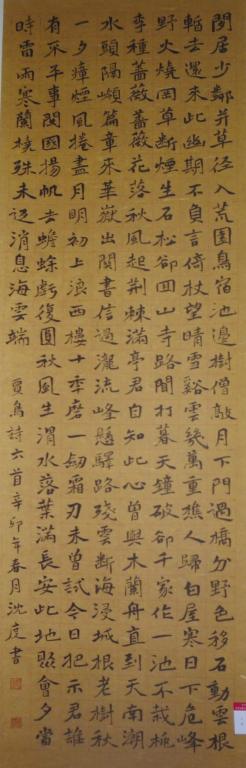 閒居少鄰并草徑入荒園鳥宿池邊樹僧敲月下門過橋分野色移石動雲根
暫去還來此幽期不負言倚杖望晴雪谿雲幾萬重樵人歸白屋寒日下危峰
野火燒岡草斷煙生石松卻回山寺路聞打暮天鐘破卻千家作一池不栽桃
李種薔薇薔薇花落秋風起荊棘滿亭君自知此心曾與木蘭舟直到天南潮
水頭隔嶺篇章來華嶽出關書信過瀧流峰懸驛路殘雲斷海浸城根老樹秋
一夕瘴煙風捲盡月明初上浪西樓十季磨一劒霜刃未曾試今日把示君誰
有不平事閩國揚帆去蟾蜍虧復圓秋風生渭水落葉滿長安此地聚會夕當
時雷雨寒蘭橈殊未返消息海雲端 賈島詩六首辛卯年春月沈度書